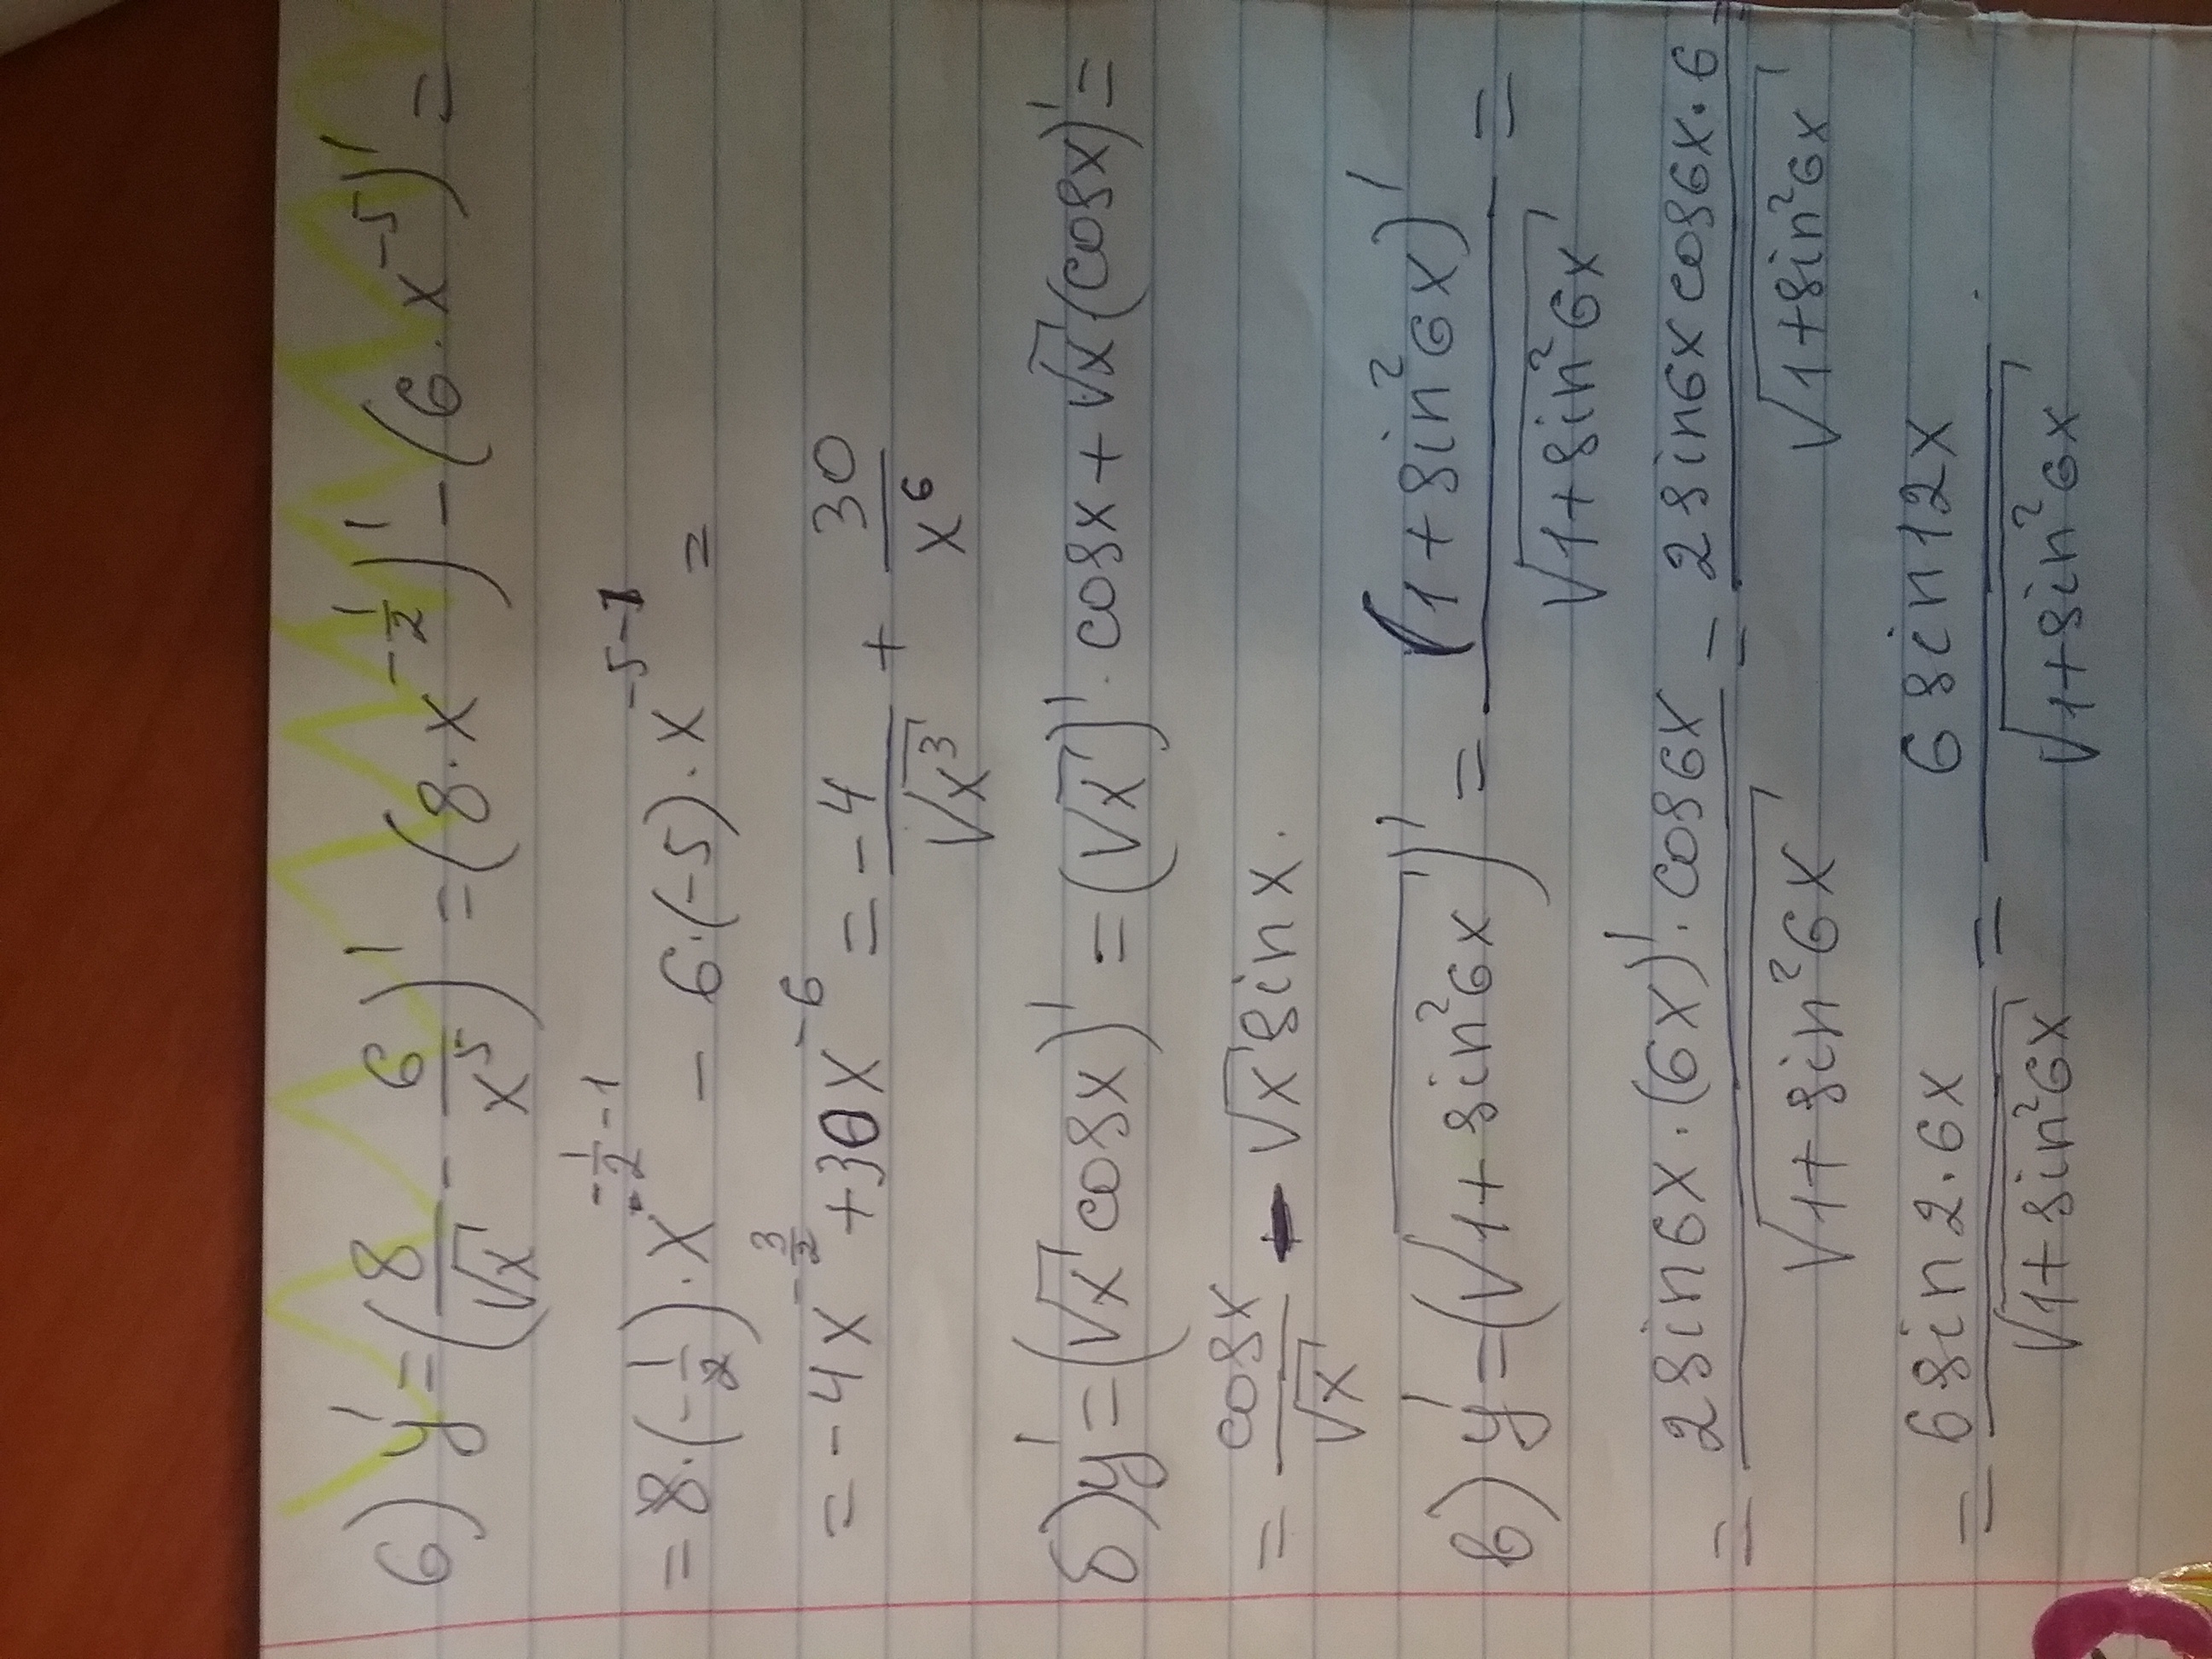 6) y' = (8/√x - 6/x⁵)' = (8·x^(-1/2))' - (6·x⁻⁵)' =
= 8·(-1/2)·x^(-1/2-1) - 6·(-5)·x^(-5-1) =
= -4x^(-3/2) + 30x⁻⁶ = -4/√x³ + 30/x⁶
б) y' = (√x cosx)' = (√x)'·cosx + √x(cosx)' =
= cosx/√x - √x sinx.
в) y' = (√(1+sin²6x))' = (1+sin²6x)'/√(1+sin²6x) =
= 2sin6x·(6x)'·cos6x/√(1+sin²6x) = 2sin6xcos6x·6/√(1+sin²6x) =
= 6sin2·6x/√(1+sin²6x) = 6sin12x/√(1+sin²6x).